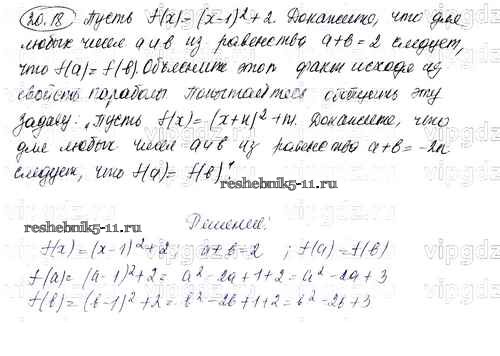 20.18. Пусть f(x) = (x-1)²+2. Докажите, что для
любых чисел a и b из равенства a+b=2 следует,
что f(a)=f(b). Объясните этот факт исходя из
свойств параболы попытайтесь обобщить эту
задачу: „Пусть f(x) = (x+n)²+m. Докажите, что
для любых чисел a и b из равенства a+b=-2n
следует, что f(a) = f(b)"
reshebnik5-11.ru
reshebnik5-11.ru
Решение:
f(x) = (x-1)²+2, a+b=2 ; f(a)=f(b)
f(a) = (a-1)²+2 = a²-2a+1+2 = a²-2a+3
f(b) = (b-1)²+2 = b²-2b+1+2 = b²-2b+3
vipgdz.ru
vipgdz.ru
vipgdz.ru
vipgdz.ru
vipgdz.ru